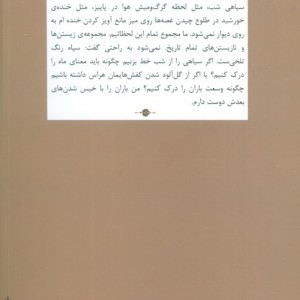 سیاهی شب، مثل لحظه گرگ‌ومیش هوا در پاییز، مثل خنده‌ی
خورشید در طلوع چیدن غصه‌ها روی میز مانع آویز کردن خنده ام به
روی دیوار نمی‌شود. ما مجموع تمام این لحظاتیم. مجموعه‌ی زیستن‌ها
و نازیستن‌های تمام تاریخ. نمی‌شود به راحتی گفت: سیاه رنگ
تلخی‌ست. اگر سیاهی را از شب خط بزنیم چگونه باید معنای ماه را
درک کنیم؟ یا اگر از گل‌آلود شدن کفش‌هایمان هراس داشته باشیم
چگونه وسعت باران را درک کنیم؟ من باران را با خیس شدن‌های
بعدش دوست دارم.